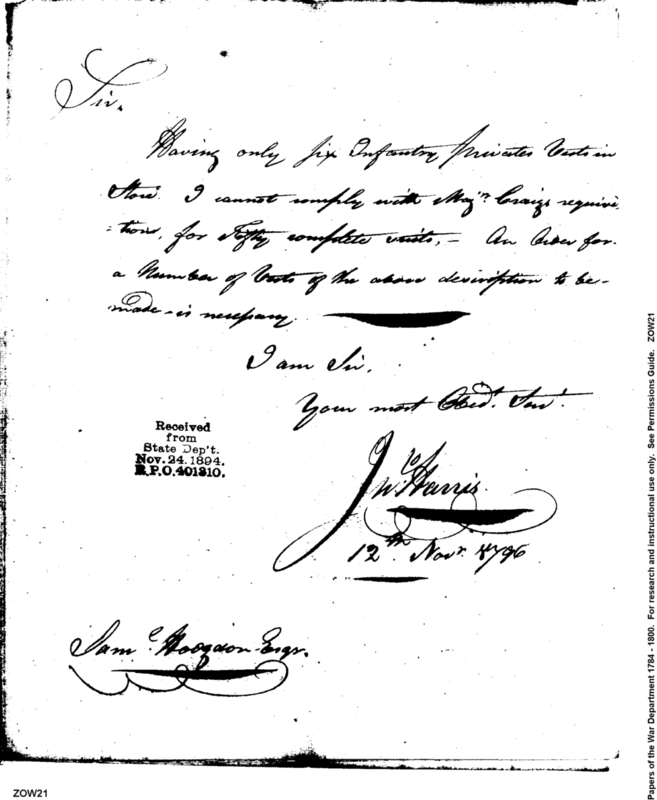 Sir.
Having only six Infantry privates Vests in
Store. I cannot comply with Majr. Craigs requisi
=tion, for Fifty complete suits, – An Order for
a Number of Vests of the above description to be –
made – is necessary.
I am Sir,
Your most Obedt. Servt.
Jno. Harris
12th Novr. 1796
Received
from
State Dep't.
Nov. 24. 1894.
R.P.O. 401310.
Saml. Hodgdon Esqr.
ZOW21
Papers of the War Department 1784 - 1800. For research and instructional use only. See Permissions Guide. ZOW21